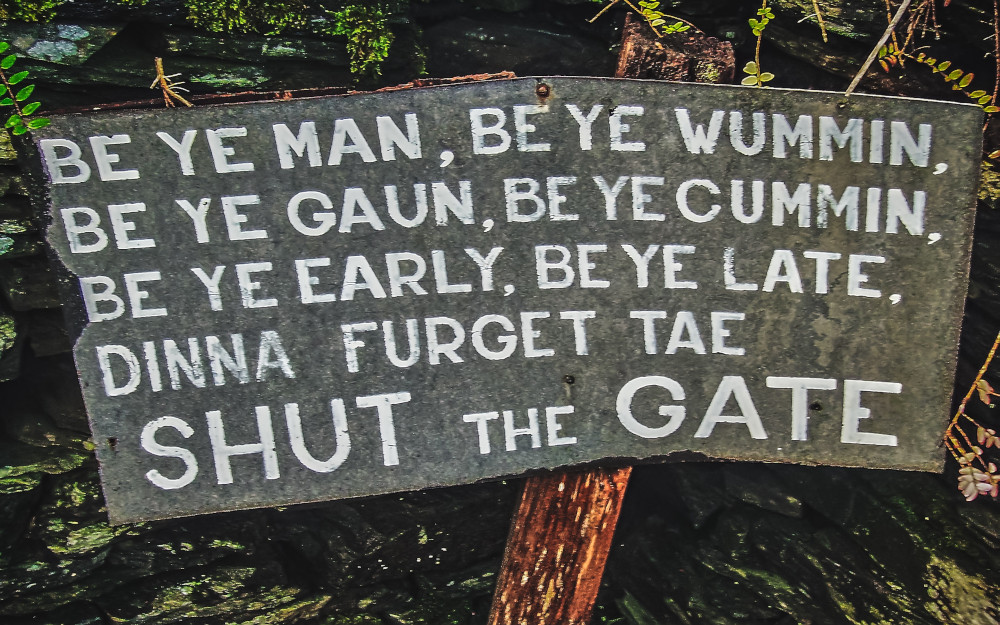 BE YE MAN, BE YE WUMMIN,
BE YE GAUN, BE YE CUMMIN,
BE YE EARLY, BE YE LATE,
DINNA FURGET TAE
SHUT THE GATE